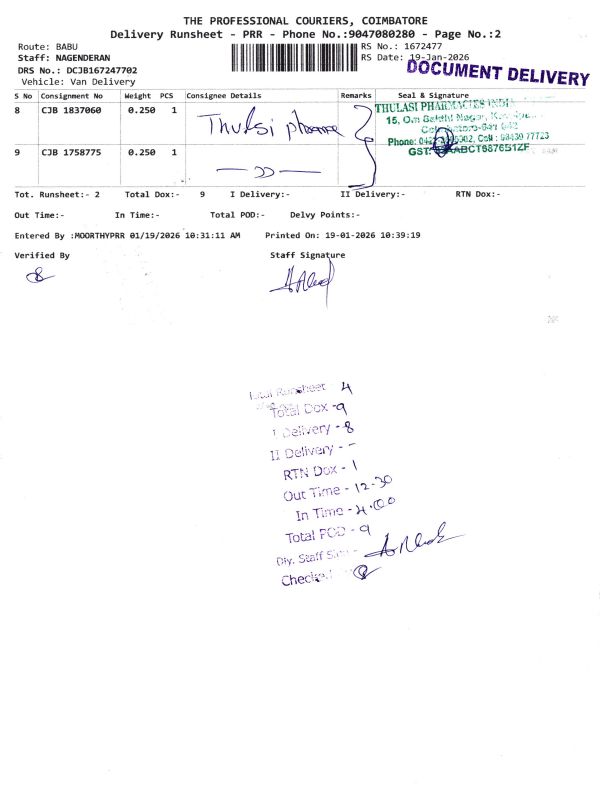 THE PROFESSIONAL COURIERS, COIMBATORE
Delivery Runsheet - PRR - Phone No.:9047080280 - Page No.:2
Route: BABU
RS No.: 1672477
Staff: NAGENDERAN
RS Date: 19-Jan-2026
DRS No.: DCJB167247702
DOCUMENT DELIVERY
Vehicle: Van Delivery
S No Consignment No Weight PCS Consignee Details Remarks Seal & Signature
8 CJB 1837060 0.250 1 Thulsi pharma
THULASI PHARMACIES INDIA
15, Om Sakthi Nagar,
Phone: 98430 77723
GST:
9 CJB 1758775 0.250 1
Tot. Runsheet:- 2 Total Dox:- 9 I Delivery:- II Delivery:- RTN Dox:-
Out Time:- In Time:- Total POD:- Delvy Points:-
Entered By :MOORTHYPRR 01/19/2026 10:31:11 AM Printed On: 19-01-2026 10:39:19
Verified By Staff Signature
Total Runsheet 4
Total Dox - 9
I Delivery - 8
II Delivery - -
RTN Dox - 1
Out Time - 12.30
In Time - 4.00
Total POD - 9
Dly. Staff
Checked